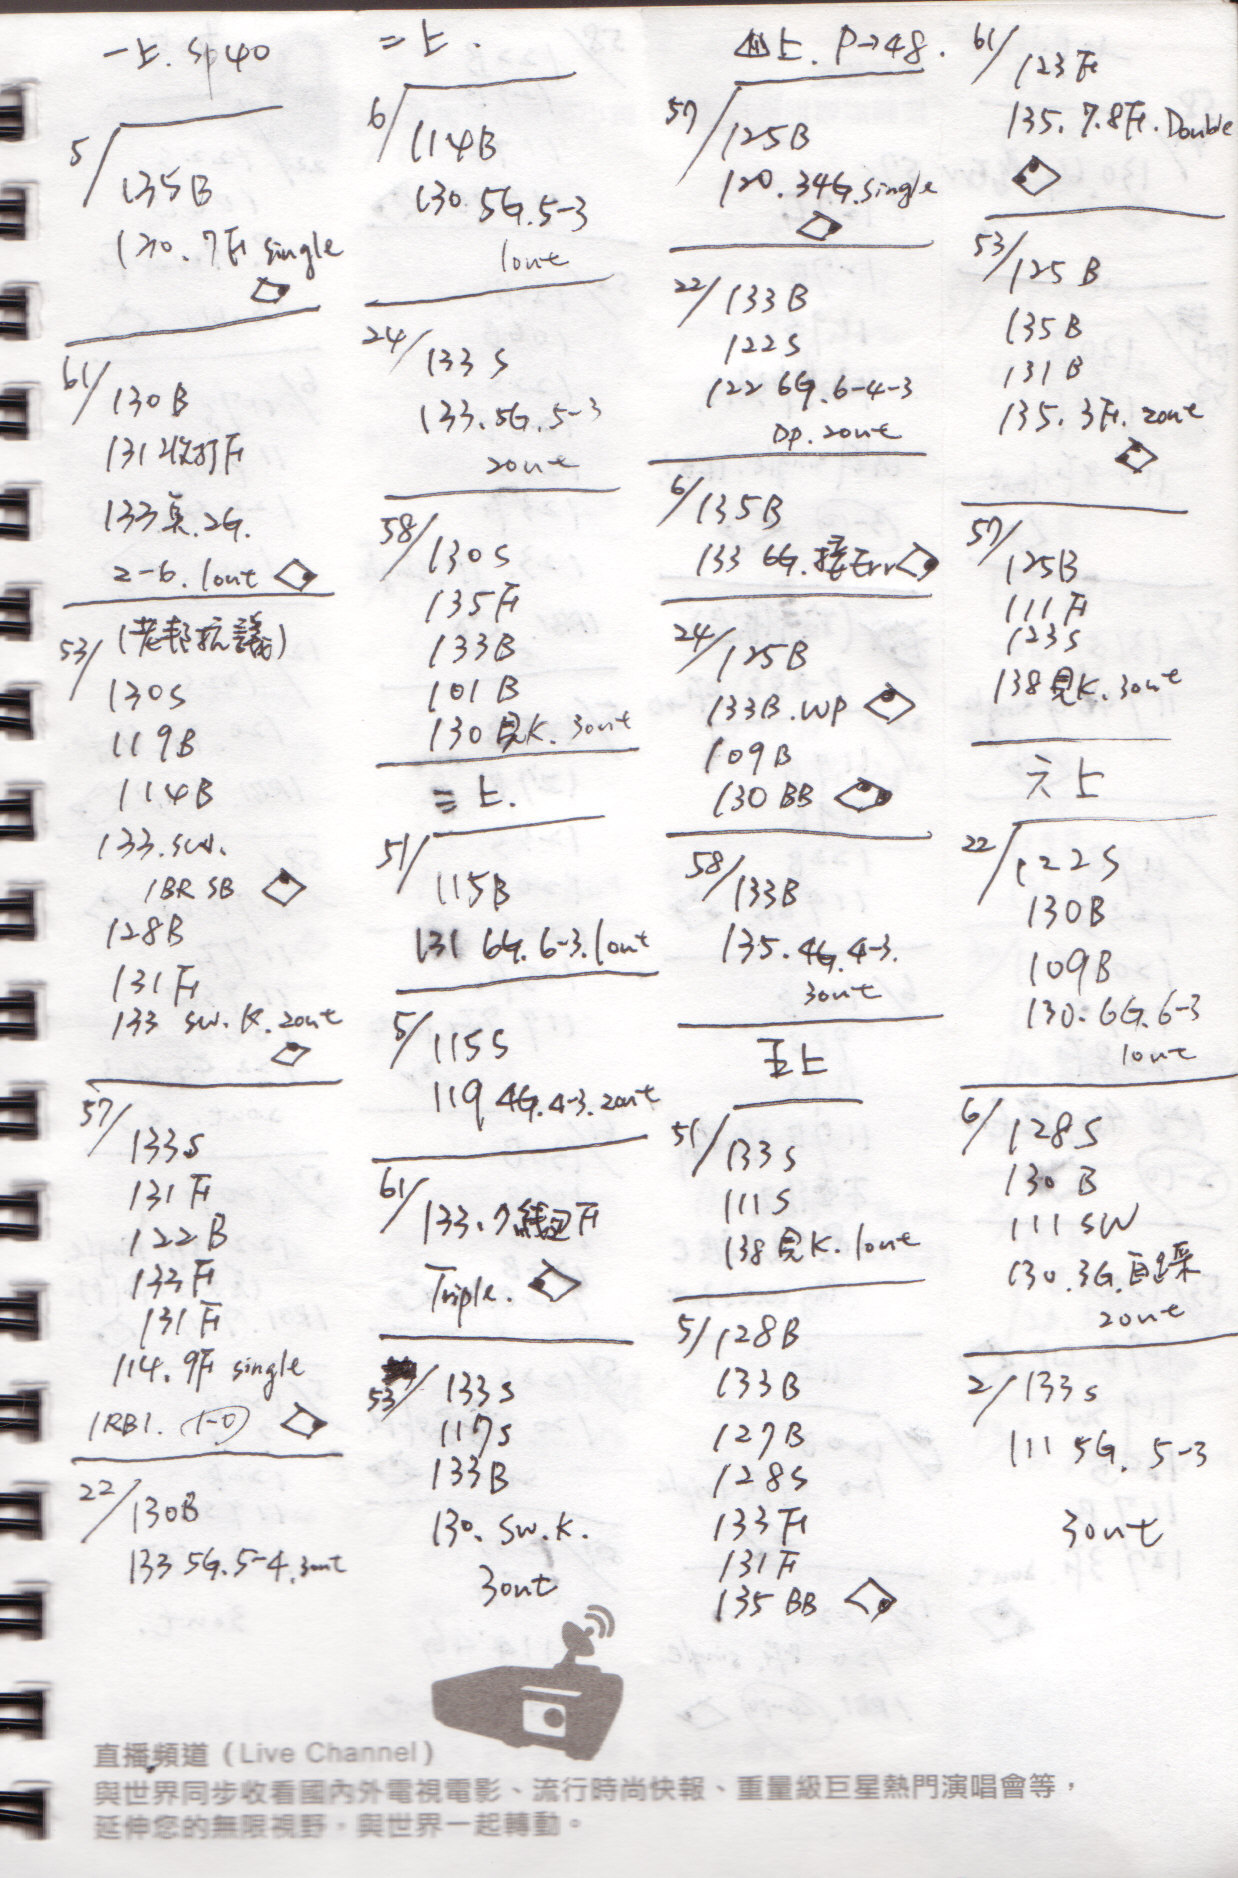 一上. sp40
5/
135B
120. 7F single
61/130B
131 收打F
133 臭.2G.
2-6. 1out
53/(老邦抗議)
130S
119B
114B
133.sw.
1BR SB
128B
131F
133 sw.K.2out
57/
133S
131F
122B
133F
131F
114.9F single
1RBI. (1-0)
22/130B
133 5G.5-4.3out
二上.
6/
114B
130.5G.5-3
1out
24/133S
133.5G.5-3
2out
58/130S
135F
133B
101B
130見K.3out
三上.
51/
115B
131 6G.6-3.1out
5/115S
119 4G.4-3.2out
61/133.7線邊F
Triple.
53/133S
117S
133B
130.SW.K.
3out
四上. P→48.
57/
125B
120.34G.single
22/133B
122S
122 6G.6-4-3
DP.2out
6/135B
133 6G.接Err
24/125B
133B.WP
109B
130 BB
58/133B
135.4G.4-3.
3out
五上
51/133S
111S
138見K.1out
5/128B
133B
127B
128S
133F
131F
135BB
61/123F
135.7.8F.Double
53/125B
135B
131B
135.3F.2out
57/125B
111F
123S
138見K.3out
六上
22/122S
130B
109B
130.6G.6-3
1out
6/128S
130B
111SW
130.3G.自踩
2out
2/133S
111 5G. 5-3
3out
直播頻道(Live Channel)
與世界同步收看國內外電視電影、流行時尚快報、重量級巨星熱門演唱會等，
延伸您的無限視野，與世界一起轉動。